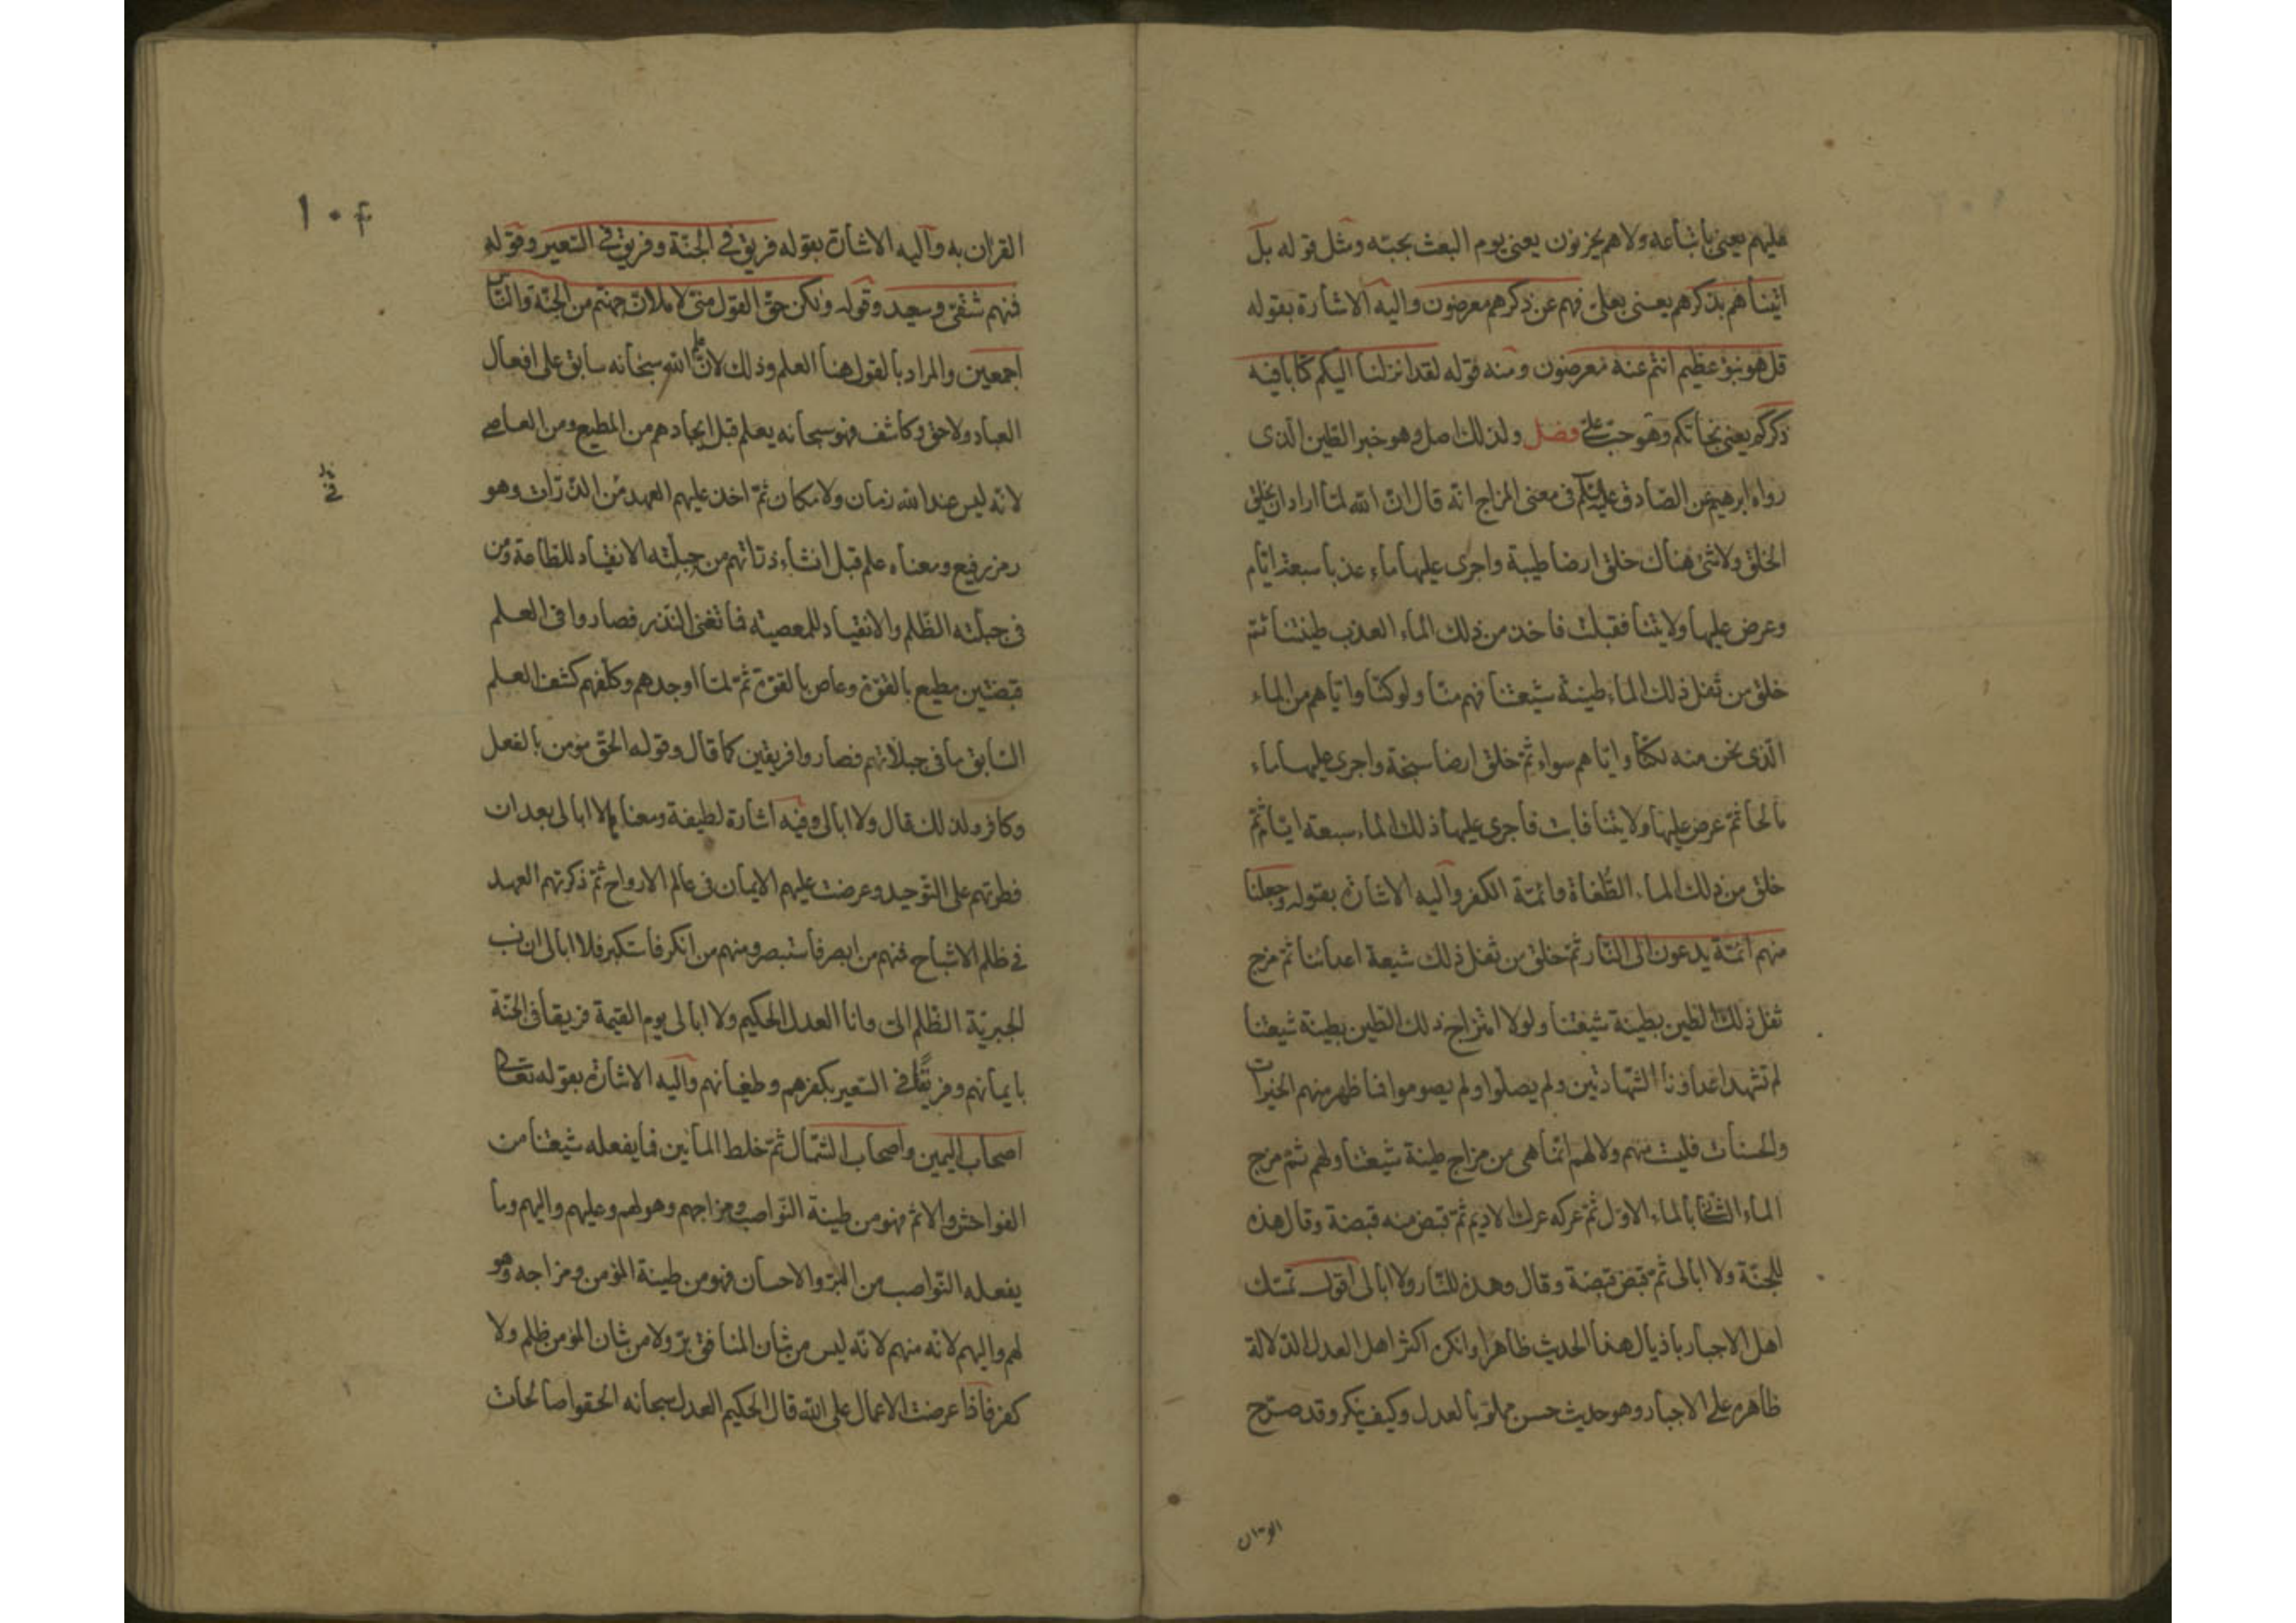 عليهم يعني باتباعه ولا هم يحزنون يعني يوم البعث بحبه ومثل قوله بل
اتيناهم بذكرهم يعني بعلي فهم عن ذكرهم معرضون واليه الاشارة بقوله
قل هو نبؤ عظيم انتم عنه معرضون ومنه قوله لقد انزلنا اليكم كتابا فيه
ذكركم يعني نجاتكم وهو حب علي فصل ولذلك اصل وهو خبر الطين الذى
رواه ابرهيم عن الصادق عليه السلام في معنى المزاج انه قال ان الله لما اراد ان يخلق
الخلق ولا شئ هناك خلق ارضا طيبة واجرى عليها ماء عذبا سبعة ايام
وعرض عليها ولايتنا فقبلت فاخذ من ذلك الماء العذب طينتنا ثم
خلق من ثفل ذلك الماء طينة شيعتنا فهم منا ولو كنا واياهم من الماء
الذى نحن منه لكنا واياهم سواء ثم خلق ارضا سبخة واجرى عليها ماء
مالحا ثم عرض عليها ولايتنا فابت فاجرى عليها ذلك الماء سبعة ايام ثم
خلق من ذلك الماء الطغاة وائمة الكفر واليه الاشارة بقوله وجعلنا
منهم ائمة يدعون الى النار ثم خلق من ثفل ذلك شيعة اعدائنا ثم مزج
ثفل ذلك الطين بطينة شيعتنا ولولا امتزاج ذلك الطين بطينة شيعتنا
لم تشهد اعداؤنا الشهادتين ولم يصلوا ولم يصوموا فما ظهر منهم الخيرات
والحسنات فليت منهم ولا لهم انما هى من مزاج طينة شيعتنا ولهم ثم مزج
الماء الثاني بالماء الاول ثم عركه عرك الاديم ثم قبض منه قبضة وقال هذه
للجنة ولا ابالى ثم قبض قبضة وقال وهذه للنار ولا ابالى اقول تمسك
اهل الاجبار باذيال هذا الحديث ظاهرا وانكر اكثر اهل العدل لدلالة
ظاهره على الاجبار وهو حديث حسن مملو بالعدل وكيف ينكر وقد صرح
القران به واليه الاشارة بقوله فريق في الجنة وفريق في السعير وقوله
فمنهم شقي وسعيد وقوله ولكن حق القول مني لاملان جهنم من الجنة والناس
اجمعين والمراد بالقول هنا العلم وذلك لان علم الله سبحانه سابق على افعال
العباد ولاحق وكاشف فهو سبحانه يعلم قبل ايجادهم من المطيع ومن العاصي
لانه ليس عند الله زمان ولا مكان ثم اخذ عليهم العهد من الذرات وهو
رمز رفيع ومعناه علم قبل انشاء ذاتهم من جبلته الانقياد للطاعة ومن
في جبلته الظلم والانقياد للمعصية فما تغنى النذر فصاروا في العلم
قبضتين مطيع بالقوة وعاص بالقوة ثم لما اوجدهم وكلفهم كشف العلم
السابق ما في جبلاتهم فصاروا فريقين كما قال وقوله الحق مؤمن بالفعل
وكافر ولذلك قال ولا ابالى وفيه اشارة لطيفة ومعناها لا ابالى بعد ان
فطرتهم على التوحيد وعرضت عليهم الايمان في عالم الارواح ثم ذكرتهم العهد
في ظلم الاشباح فمنهم من ابصر فاستبصر ومنهم من انكر فاستكبر فلا ابالى ان نسب
الجبرية الظلم الى وانا العدل الحكيم ولا ابالى يوم القيمة فريقا في الجنة
بايمانهم وفريقا في السعير بكفرهم وطغيانهم واليه الاشارة بقوله تعالى
اصحاب اليمين واصحاب الشمال ثم خلط المائين فما يفعله شيعتنا من
الفواحش والاثم فهو من طينة النواصب ومزاجهم وهو لهم وعليهم واليهم وما
يفعله النواصب من البر والاحسان فهو من طينة المؤمن ومزاجه وهو
لهم واليهم لانه منهم لانه ليس من شان المنافق بر ولا من شان المؤمن ظلم ولا
كفر فاذا عرضت الاعمال على الله قال الحكيم العدل سبحانه الحقوا صالحات